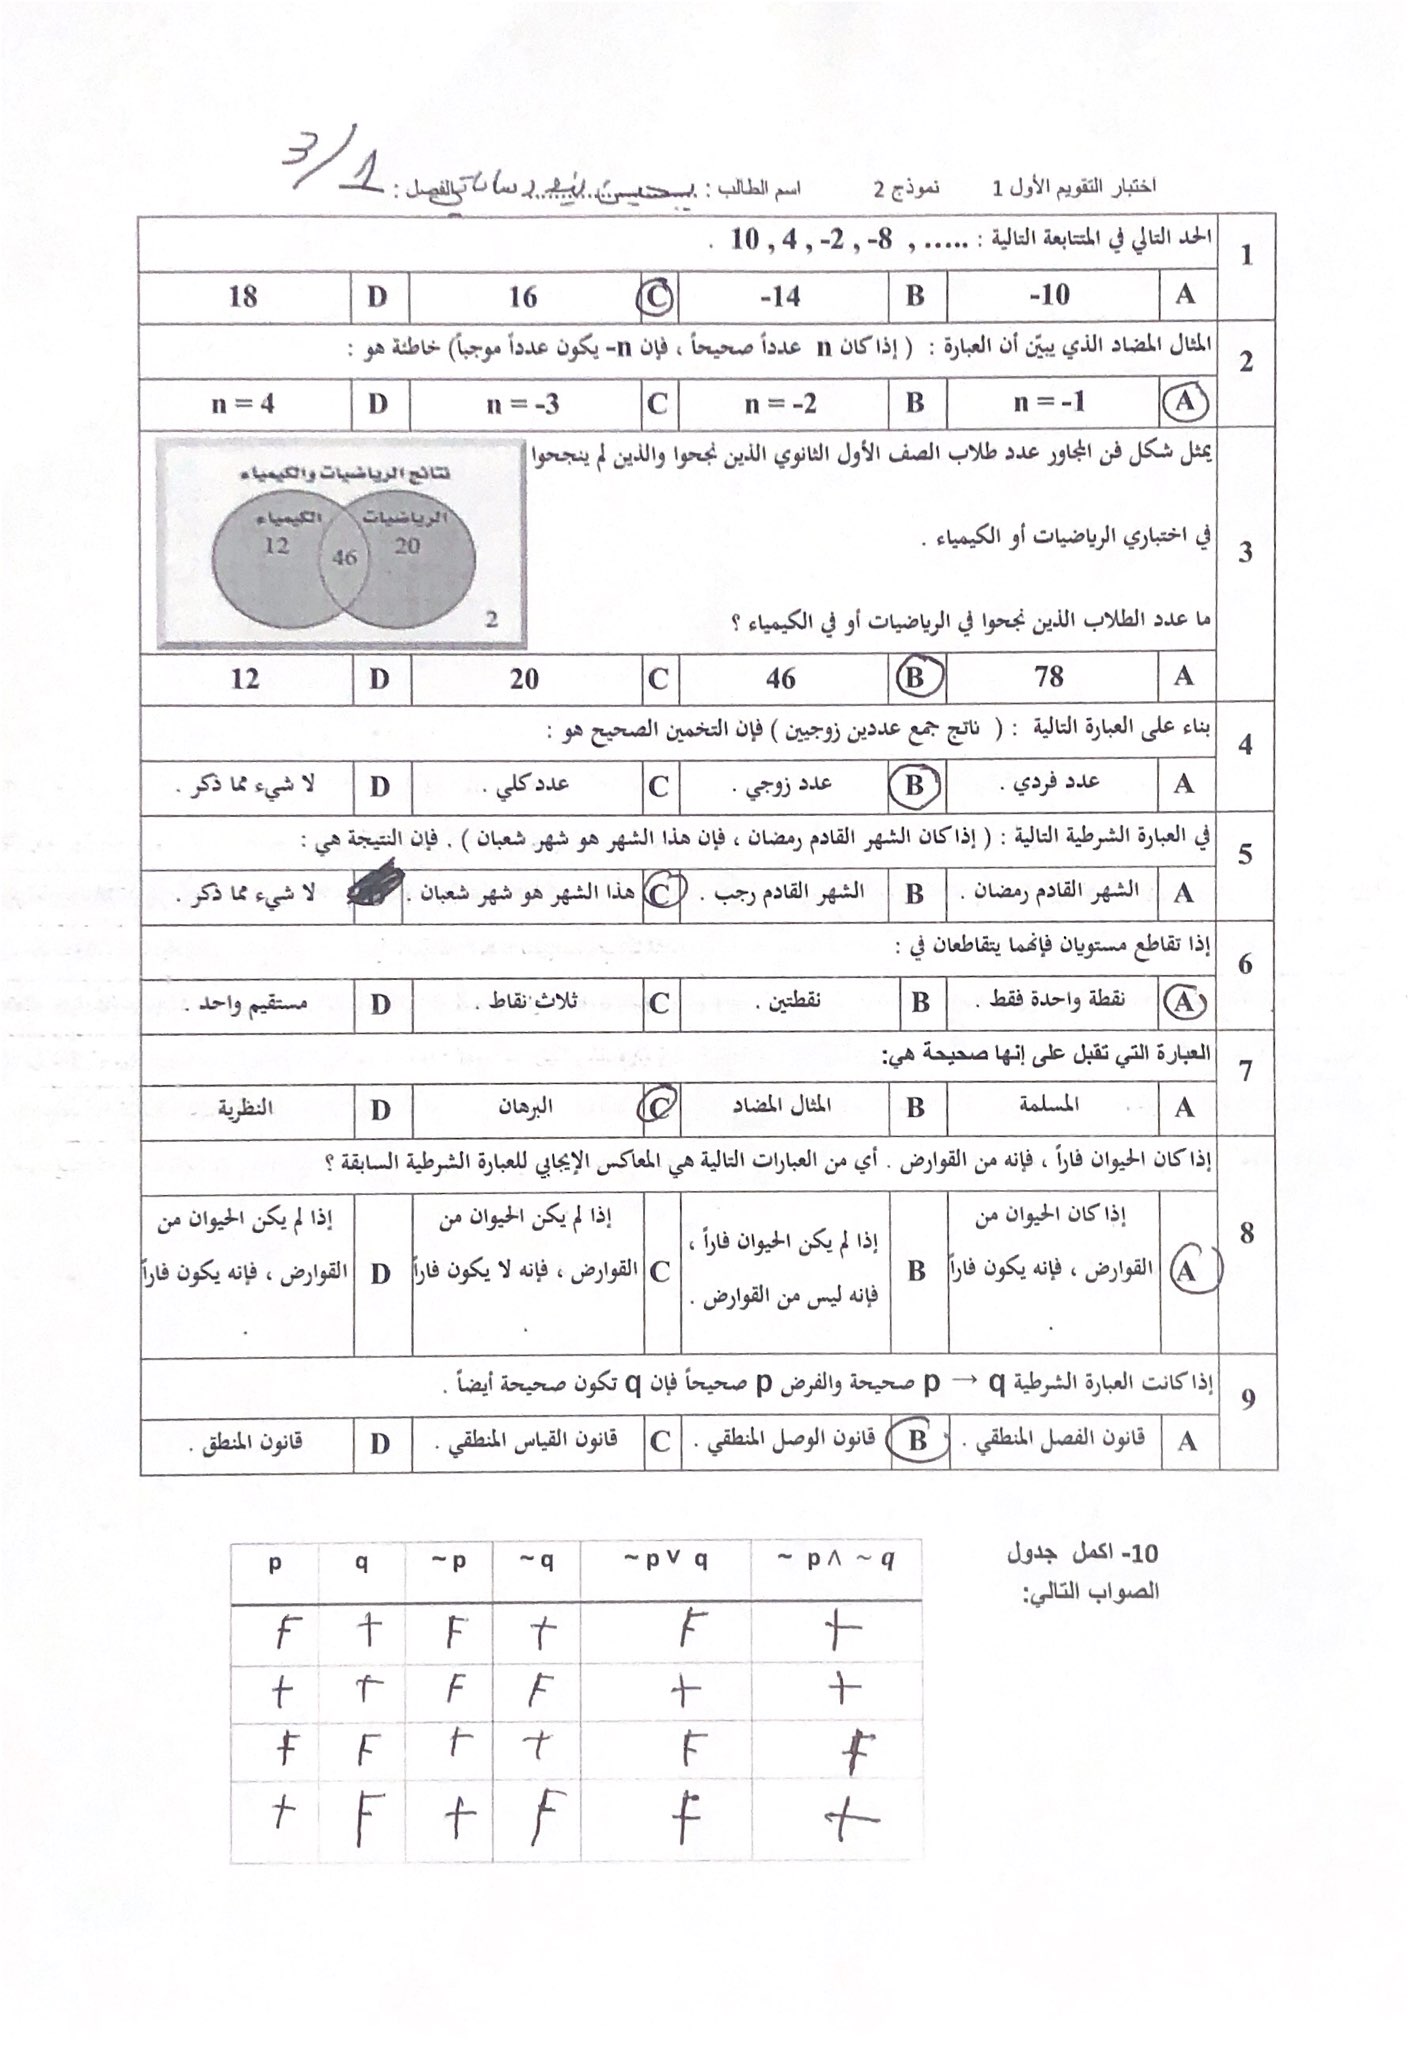 اختبار التقويم الأول 1 نموذج 2 اسم الطالب : الفصل : 3/1
1 الحد التالي في المتتابعة التالية : ..... , 10 , 4 , -2 , -8 .
A -10 B -14 C 16 D 18
2 المثال المضاد الذي يبيّن أن العبارة : ( إذا كان n عدداً صحيحاً ، فإن n- يكون عدداً موجباً) خاطئة هو :
A n = -1 B n = -2 C n = -3 D n = 4
يمثل شكل فن المجاور عدد طلاب الصف الأول الثانوي الذين نجحوا والذين لم ينجحوا
3 في اختباري الرياضيات أو الكيمياء .
ما عدد الطلاب الذين نجحوا في الرياضيات أو في الكيمياء ؟
نتائج الرياضيات والكيمياء
الرياضيات الكيمياء
20 46 12
2
A 78 B 46 C 20 D 12
4 بناء على العبارة التالية : ( ناتج جمع عددين زوجيين ) فإن التخمين الصحيح هو :
A عدد فردي . B عدد زوجي . C عدد كلي . D لا شيء مما ذكر .
5 في العبارة الشرطية التالية : ( إذا كان الشهر القادم رمضان ، فإن هذا الشهر هو شهر شعبان ) . فإن النتيجة هي :
A الشهر القادم رمضان . B الشهر القادم رجب . C هذا الشهر هو شهر شعبان . لا شيء مما ذكر .
6 إذا تقاطع مستويان فإنهما يتقاطعان في :
A نقطة واحدة فقط . B نقطتين . C ثلاث نقاط . D مستقيم واحد .
7 العبارة التي تقبل على إنها صحيحة هي:
A المسلمة B المثال المضاد C البرهان D النظرية
8 إذا كان الحيوان فاراً ، فإنه من القوارض . أي من العبارات التالية هي المعاكس الإيجابي للعبارة الشرطية السابقة ؟
A إذا كان الحيوان من القوارض ، فإنه يكون فاراً .
B إذا لم يكن الحيوان فاراً ، فإنه ليس من القوارض .
C إذا لم يكن الحيوان من القوارض ، فإنه لا يكون فاراً .
D إذا لم يكن الحيوان من القوارض ، فإنه يكون فاراً .
9 إذا كانت العبارة الشرطية p → q صحيحة والفرض p صحيحاً فإن q تكون صحيحة أيضاً .
A قانون الفصل المنطقي . B قانون الوصل المنطقي . C قانون القياس المنطقي . D قانون المنطق .
10- اكمل جدول
الصواب التالي:
p q ~p ~q ~p ∨ q ~ p ∧ ~ q
F t F t F t
t t F F t t
F F t t F F
t F t F F t